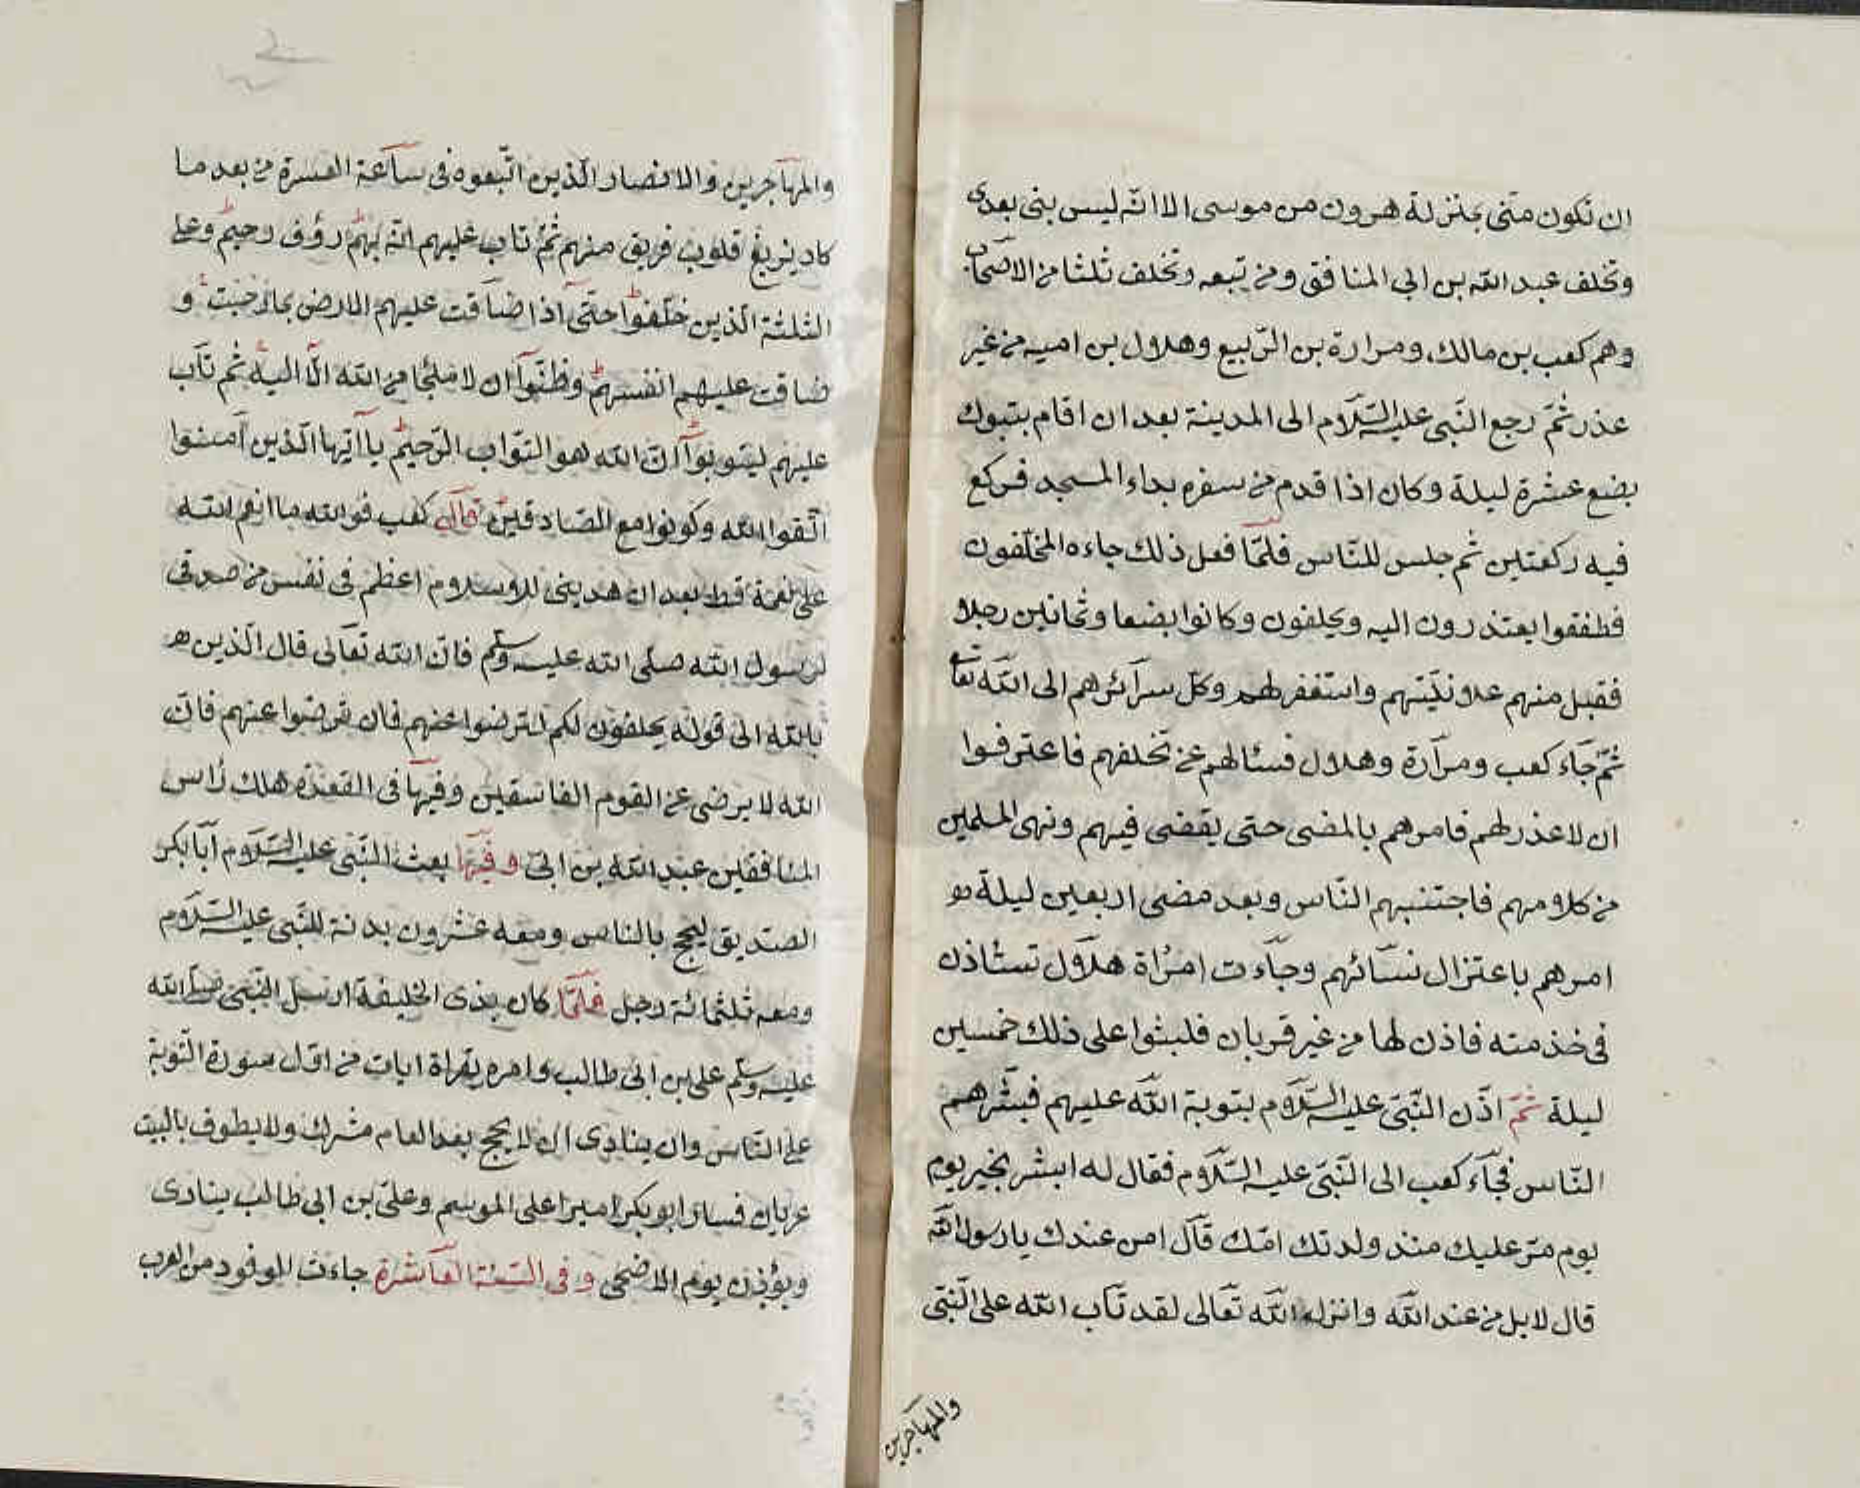 ان تكون منى بمنزلة هرون من موسى الا انه ليس بنى بعدى
وتخلف عبد الله بن ابى المنافق ومن تبعه وتخلف ثلثا من الاصحاب
وهم كعب بن مالك ومرارة بن الربيع وهلال بن اميه من غير
عذر ثم رجع النبى عليه السلام الى المدينة بعد ان اقام بتبوك
بضع عشرة ليلة وكان اذا قدم من سفره بداء المسجد فركع
فيه ركعتين ثم جلس للناس فلما فعل ذلك جاءه المخلفون
فطفقوا يعتذرون اليه ويحلفون وكانوا بضعا وثمانين رجلا
فقبل منهم علانيتهم واستغفر لهم وكل سرآئرهم الى الله تعا
ثم جاء كعب ومرارة وهلال فسئالهم عن تخلفهم فاعترفوا
ان لا عذر لهم فامرهم بالمضى حتى يقضى فيهم ونهى المسلمين
من كلامهم فاجتنبهم الناس وبعد مضى اربعين ليلة
امرهم باعتزال نسآئهم وجاءت امرأة هلال تستأذن
فى خذمته فاذن لها من غير قربان فلبثوا على ذلك خمسين
ليلة ثم اذن النبى عليه السلام بتوبة الله عليهم فبشرهم
الناس فجاء كعب الى النبى عليه السلام فقال له ابشر بخير يوم
يوم مر عليك منذ ولدتك امك قال امن عندك يا رسول الله
قال لا بل من عند الله وانزل الله تعالى لقد تاب الله على النبى
والمهاجرين
والمهاجرين والانصار الذين اتبعوه فى ساعة العسرة من بعد ما
كاد يزيغ قلوب فريق منهم ثم تاب عليهم انه بهم رؤف رحيم وعلى
الثلثة الذين خلفوا حتى اذا ضاقت عليهم الارض بما رحبت و
ضاقت عليهم انفسهم وظنوا ان لا ملجا من الله الا اليه ثم تاب
عليهم ليتوبوا ان الله هو التواب الرحيم يا ايها الذين آمنوا
اتقوا الله وكونوا مع الصادقين قال كعب فوالله ما انعم الله
على نعمة قط بعد ان هدينى للاسلام اعظم فى نفسى من صدقى
لرسول الله صلى الله عليه وسلم فان الله تعالى قال الذين
بالله الى قوله يحلفون لكم لترضوا عنهم فان ترضوا عنهم فان
الله لا يرضى عن القوم الفاسقين وفيها فى القعدة هلك رأس
المنافقين عبد الله بن ابى وفيها بعث النبى عليه السلام ابا بكر
الصديق ليحج بالناس ومعه عشرون بدنة للنبى عليه السلام
ومعه ثلثمائة رجل فلما كان بذى الخليفة ارسل النبى صلى الله
عليه وسلم على بن ابى طالب وامره بقراة ايات من اول سورة التوبة
على الناس وان ينادى ان لا يحج بعد العام مشرك ولا يطوف بالبيت
عريان فسار ابو بكر اميرا على الموسم وعلى بن ابى طالب ينادى
ويؤذن يوم الاضحى وفى السنة العاشرة جاءت الوفود من العرب